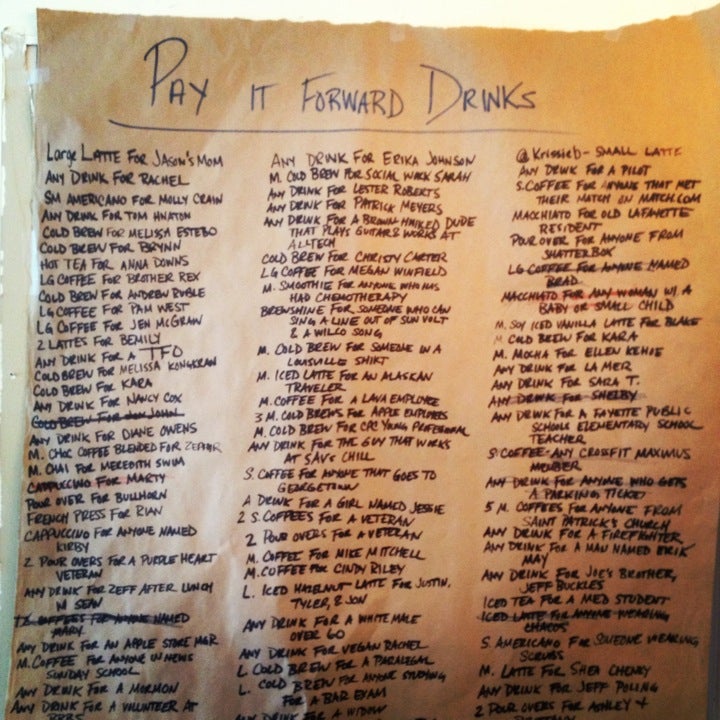 PAY IT FORWARD DRINKS
Large LATTE FOR JASON'S MOM
ANY DRINK FOR RACHEL
SM AMERICANO FOR MOLLY CRAIN
ANY DRINK FOR TOM HNATON
COLD BREW FOR MELISSA ESTEBO
COLD BREW FOR BRYNN
HOT TEA FOR ANNA DOWNS
LG COFFEE FOR BROTHER REX
COLD BREW FOR ANDREW RUBLE
LG COFFEE FOR PAM WEST
LG COFFEE FOR JEN MCGRAW
2 LATTES FOR BEMILY
ANY DRINK FOR A TFO
COLD BREW FOR MELISSA KONGKRAN
COLD BREW FOR KARA
ANY DRINK FOR NANCY COX
COLD BREW FOR JON JOHN
ANY DRINK FOR DIANE OWENS
M. CHOC COFFEE BLENDED FOR ZEPHIR
M. CHAI FOR MEREDITH SWIM
CAPPUCCINO FOR MARTY
POUR OVER FOR BULLHORN
FRENCH PRESS FOR RIAN
CAPPUCCINO FOR ANYONE NAMED
KIRBY
2 POUR OVERS FOR A PURPLE HEART
VETERAN
ANY DRINK FOR ZEFF AFTER LUNCH
W SEAN
COFFEES FOR ANYONE NAMED
MARY
ANY DRINK FOR AN APPLE STORE MGR
M. COFFEE FOR ANYONE IN NEWS
SUNDAY SCHOOL
ANY DRINK FOR A MORMON
ANY DRINK FOR A VOLUNTEER AT
ANY DRINK FOR ERIKA JOHNSON
M. COLD BREW FOR SOCIAL WORK SARAH
ANY DRINK FOR LESTER ROBERTS
ANY DRINK FOR PATRICK MEYERS
ANY DRINK FOR A BROWN HAIRED DUDE
THAT PLAYS GUITAR & WORKS AT
ALLTECH
COLD BREW FOR CHRISTY CARTER
LG COFFEE FOR MEGAN WINFIELD
M. SMOOTHIE FOR ANYONE WHO HAS
HAD CHEMOTHERAPY
BREWSHINE FOR SOMEONE WHO CAN
SING A LINE OUT OF SUN VOLT
& A WILCO SONG
M. COLD BREW FOR SOMEONE IN A
LOUISVILLE SHIRT
M. ICED LATTE FOR AN ALASKAN
TRAVELER
M. COFFEE FOR A LAVA EMPLOYEE
3 M. COLD BREWS FOR APPLE EMPLOYEES
M. COLD BREW FOR CPC YOUNG PROFESSIONAL
ANY DRINK FOR THE GUY THAT WORKS
AT SAV'S CHILL
S. COFFEE FOR ANYONE THAT GOES TO
GEORGETOWN
A DRINK FOR A GIRL NAMED JESSIE
2 S. COFFEES FOR A VETERAN
2 POUR OVERS FOR A VETERAN
M. COFFEE FOR MIKE MITCHELL
M. COFFEE FOR CINDY RILEY
L. ICED HAZELNUT LATTE FOR JUSTIN,
TYLER, & JON
ANY DRINK FOR A WHITE MALE
OVER 60
ANY DRINK FOR VEGAN RACHEL
L. COLD BREW FOR A PARALEGAL
L. COLD BREW FOR ANYONE STUDYING
FOR A BAR EXAM
ANY DRINK FOR A WIDOW
@Krissieb - SMALL LATTE
ANY DRINK FOR A PILOT
S. COFFEE FOR ANYONE THAT MET
THEIR MATCH ON MATCH.COM
MACCHIATO FOR OLD LAFAYETTE
RESIDENT
POUR OVER FOR ANYONE FROM
SHATTERBOX
LG COFFEE FOR ANYONE NAMED
BRAD
MACCHIATO FOR ANY WOMAN W/ A
BABY OR SMALL CHILD
M. SOY ICED VANILLA LATTE FOR BLAKE
M COLD BREW FOR KARA
M. MOCHA FOR ELLEN KEHOE
ANY DRINK FOR LA MER
ANY DRINK FOR SARA T.
ANY DRINK FOR SHELBY
ANY DRINK FOR A FAYETTE PUBLIC
SCHOOL ELEMENTARY SCHOOL
TEACHER
S COFFEE - ANY CROSSFIT MAXIMUS
MEMBER
ANY DRINK FOR ANYONE WHO GETS
A PARKING TICKET
5 M. COFFEES FOR ANYONE FROM
SAINT PATRICK'S CHURCH
ANY DRINK FOR A FIREFIGHTER
ANY DRINK FOR A MAN NAMED ERIK
MAY
ANY DRINK FOR JOE'S BROTHER,
JEFF BUCKLES
ICED TEA FOR A MED STUDENT
ICED LATTE FOR ANYONE WEARING
CHACOS
S. AMERICANO FOR SOMEONE WEARING
SCRUBS
M. LATTE FOR SHEA CHENEY
ANY DRINK FOR JEFF POLING
2 POUR OVERS FOR ASHLEY +